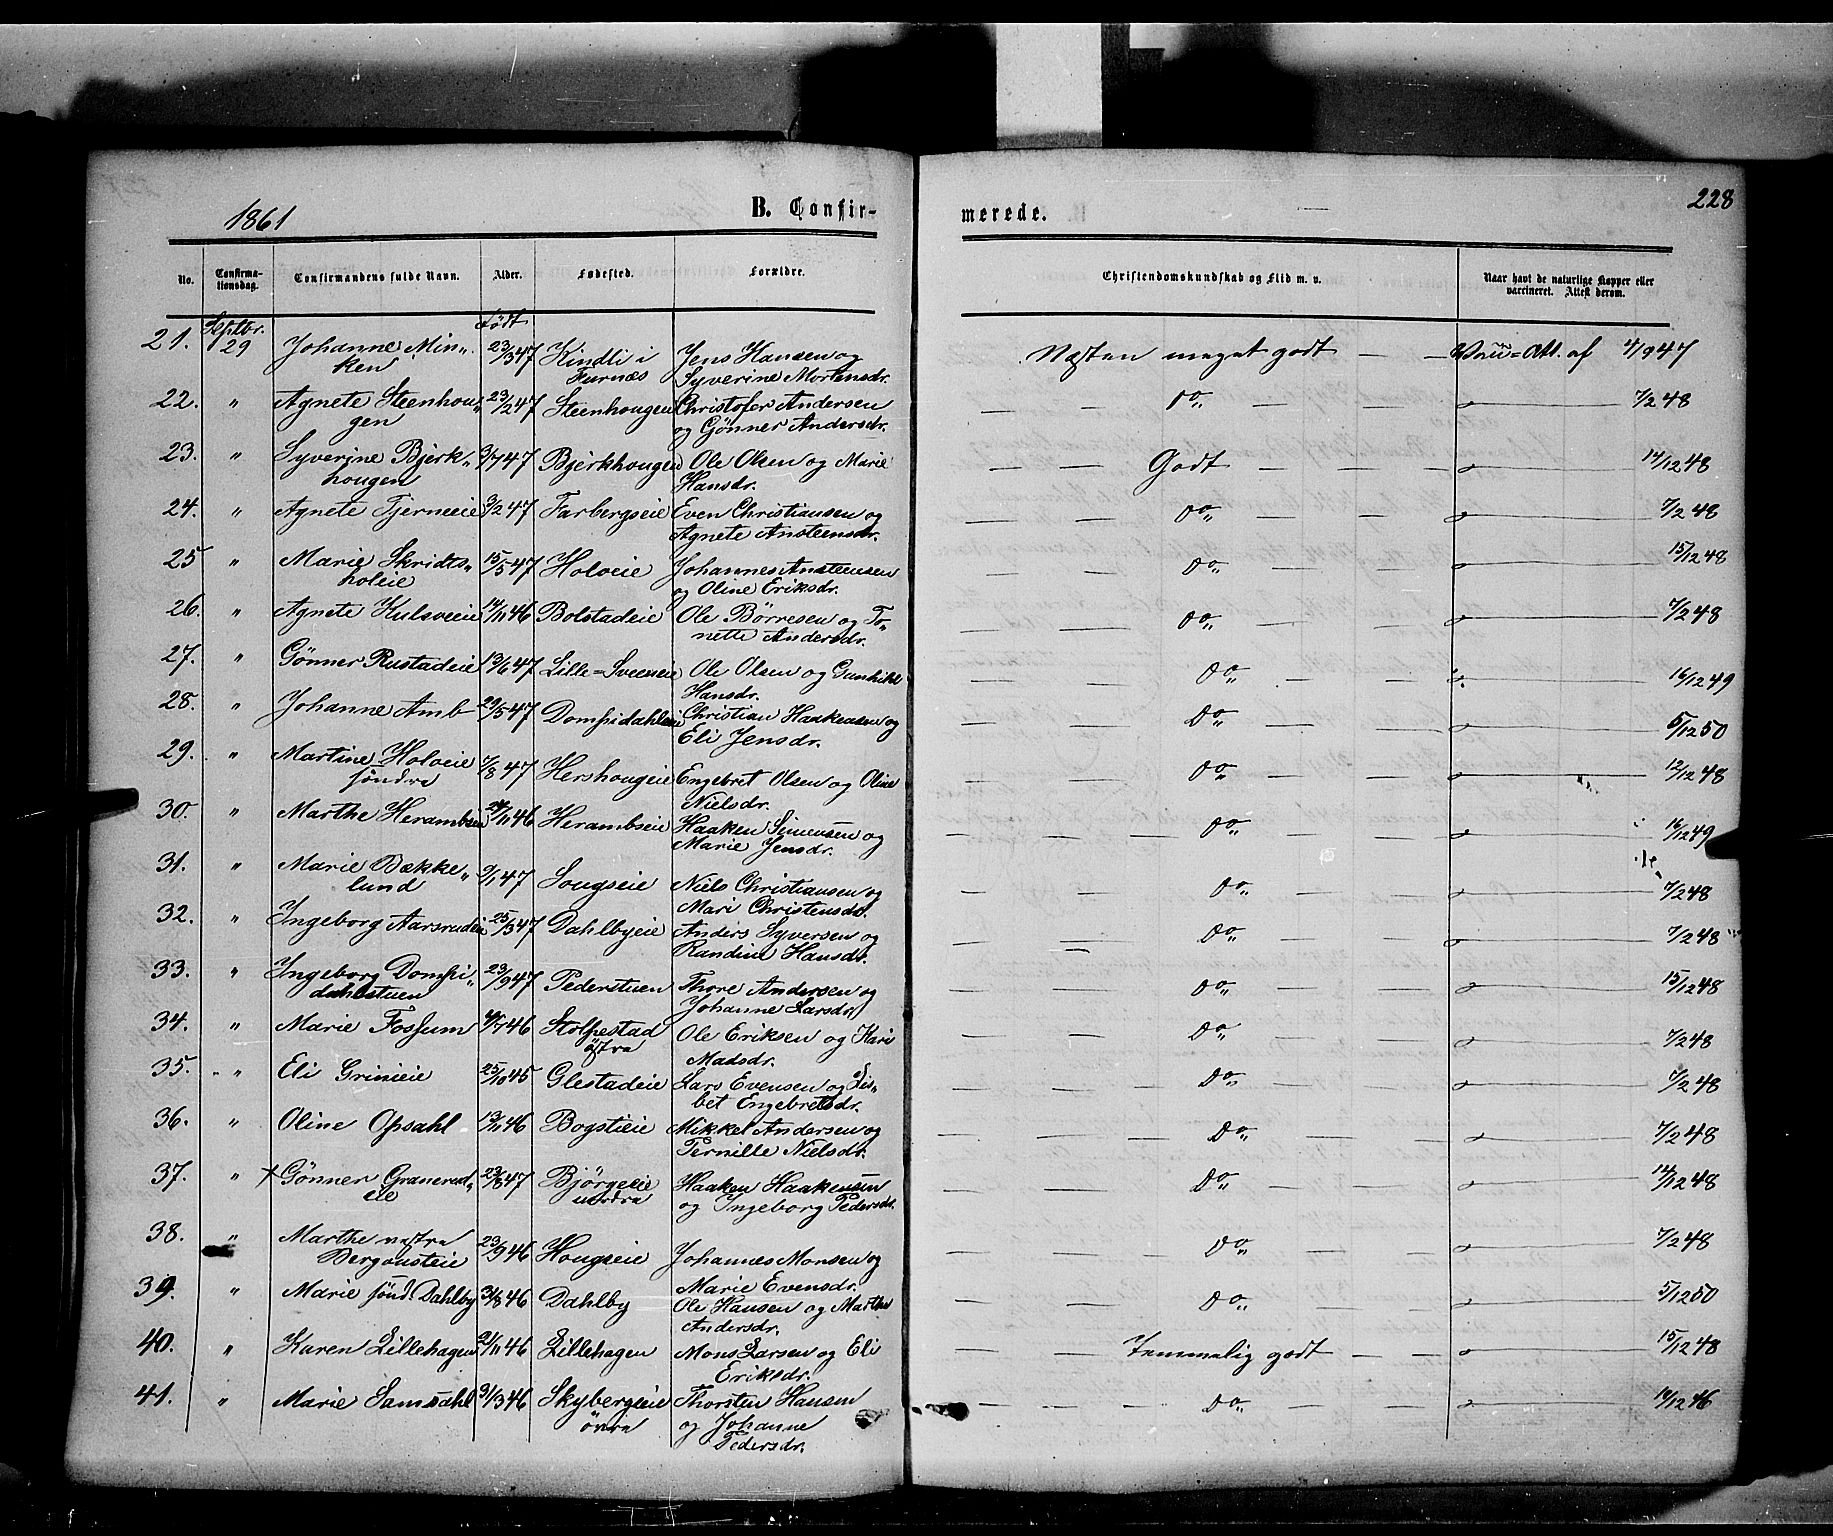 228
1861
B. Confir-
merede.
No.
Confirma-
tionsdag.
Confirmandens fulde Navn.
Alder.
Fødested.
Forældre.
Christendomskundskab og Flid m. v.
Naar havt de naturlige Kopper eller
vaccineret. Attest derom.
Født
21. Septbr. 29 Johanne Min- 23/3 47 Kindli i Jens Hansen og Næsten meget godt — — Vacc=Att. af 4/9 47
ken Furnæs Syverine Mortensdr.
22. " Agnete Steenhou- 23/2 47 Steenhougen Christofer Andersen — — — Do — — — 7/2 48
gen og Gønner Andersdr.
23. " Syverine Bjerk- 3/7 47 Bjerkhougen Ole Olsen og Marie — — — Godt — — — 14/12 48
hougen Hansdr.
24. " Agnete Tjerneeie 3/2 47 Farbergseie Even Christiansen og — — — Do — — — 7/2 48
Agnete Ansteensdr.
25 " Marie Skridts- 15/5 47 Holoeie Johannes Ansteensen — — — Do — — — 15/12 48
holeie og Oline Eriksdr.
26. " Agnete Kulsveeie 14/11 46 Bolstadeie Ole Børresen og To- — — — Do — — — 7/2 48
nette Andersdr.
27. " Gønner Rustadeie 13/6 47 Lille=Sveeneie Ole Olsen og Gunhild — — — Do — — — 16/12 49
Hansdr.
28. " Johanne Amb 29/5 47 Dompidahleie Christian Haakensen og — — — Do — — — 5/12 50
Eli Jensdr.
29. " Martine Holoeie 7/8 47 Hershougeie Engebret Olsen og Oline — — — Do — — — 12/12 48
søndre Nielsdr.
30. " Marthe Herambseie 24/11 46 Herambseie Haaken Simensen og — — — Do — — — 16/12 49
Marie Jensdr.
31. " Marie Bække- 9/1 47 Sougseie Niels Christiansen og — — — Do — — — 7/2 48
lund Mari Christensdr.
32. " Ingeborg Aarsrudeie 25/3 47 Dahlbyeie Anders Syversen og — — — Do — — — 7/2 48
Randine Hansdr.
33. " Ingeborg Dompi- 23/9 47 Pederstuen Thore Andersen og — — — Do — — — 15/12 48
dahlstuen Johanne Larsdr.
34. " Marie Fossum 4/7 46 Stolpestad Ole Eriksen og Kari — — — Do — — — 7/2 48
østre Madsdr.
35. " Eli Grimeie 25/10 45 Glestadeie Lars Evensen og Lis- — — — Do — — — 7/2 48
bet Engebretsdr.
36. " Oline Opsahl 13/11 46 Bogstieie Mikkel Andersen og — — — Do — — — 7/2 48
Pernille Nielsdr.
37. " × Gønner Granerud- 23/8 47 Bjørgeeie Haaken Haakensen — — — Do — — — 14/12 48
eie nordre og Ingeborg Pedersdr.
38. " Marthe vestre 23/9 46 Hougseie Johannes Monsen og — — — Do — — — 7/2 48
Bergousteie Marie Evensdr.
39. " Marie sønd. Dahlby 31/8 46 Dahlby Ole Hansen og Marthe — — — Do — — — 5/12 50
Andersdr.
40. " Karen Lillehagen 21/11 46 Lillehagen Mons Larsen og Eli Temmelig godt — — 15/12 48
Eriksdr.
41. " Marie Samsdahl 31/3 46 Skybergeie Thorsten Hansen — — — Do — — — 19/12 46
øvre og Johanne
Pedersdr.